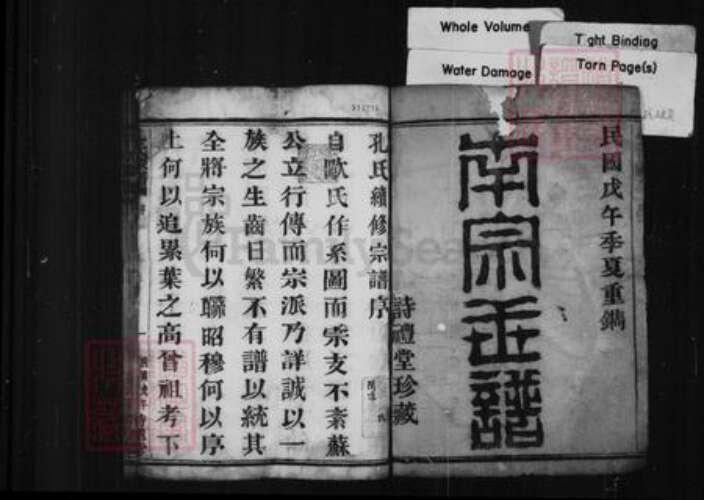 Whole Volume
Tight Binding
Water Damage
Torn Page(s)
民國戊午季夏重鐫
南宗世譜
詩禮堂珍藏
孔氏續修宗譜序
自歐氏作系圖而宗支不紊蘇
公立行傳而宗派乃詳誠以一
族之生齒日繁不有譜以統其
全將宗族何以聯昭穆何以序
上何以追累葉之高曾祖考下